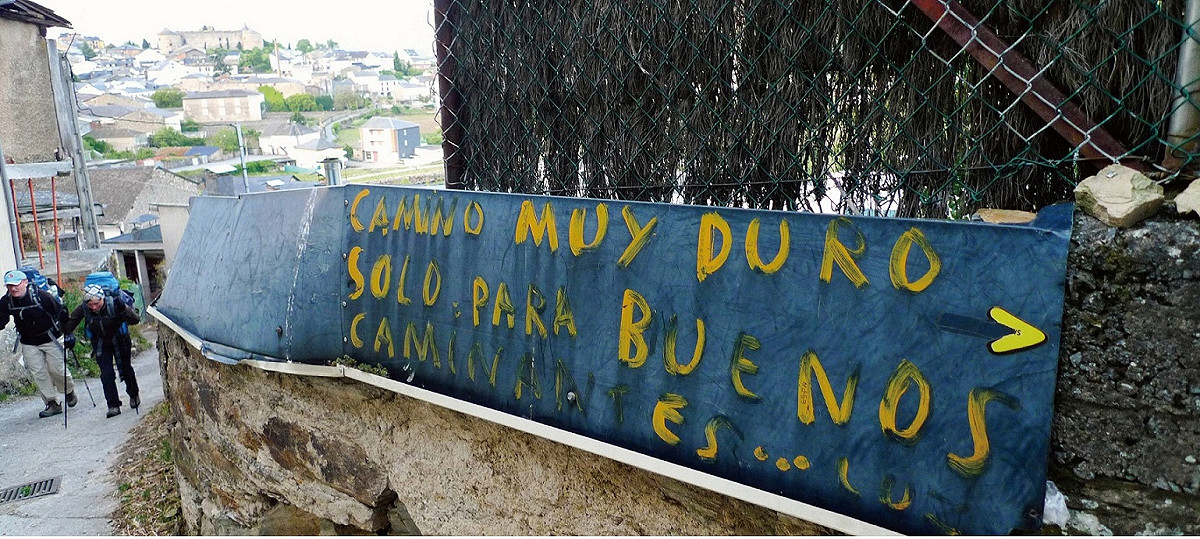 CAMINO MUY DURO
SOLO. PARA BUENOS
CAMINANTES...